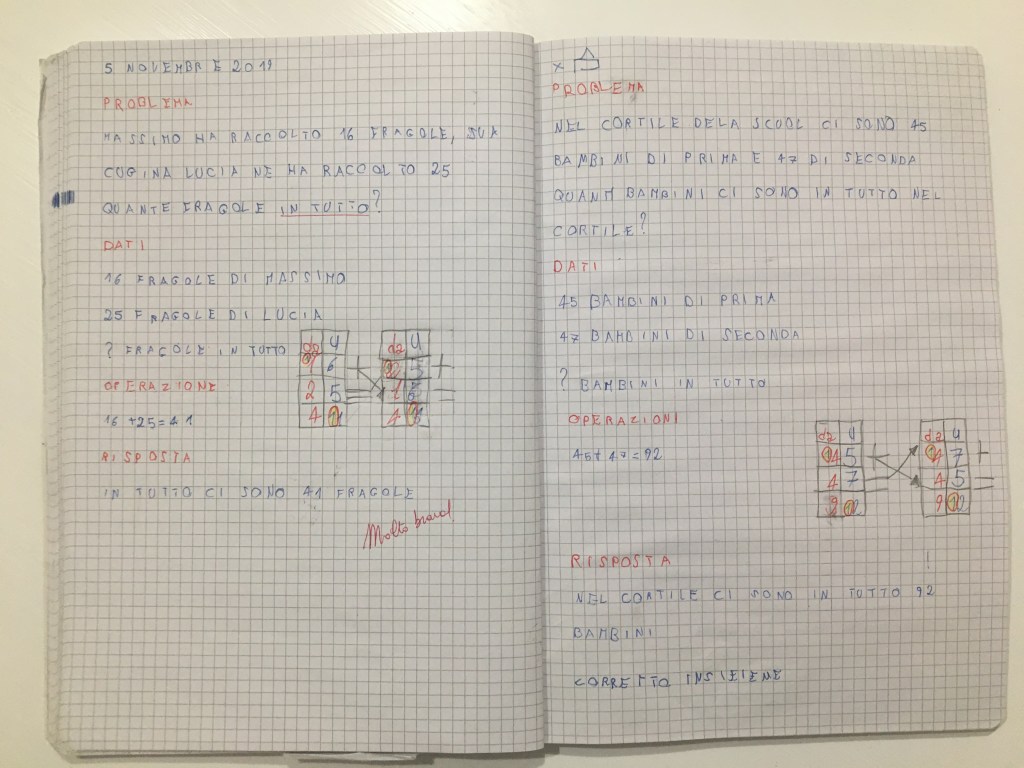 5 NOVEMBRE 2019
PROBLEMA
MASSIMO HA RACCOLTO 16 FRAGOLE, SUA
CUGINA LUCIA NE HA RACCOLTO 25
QUANTE FRAGOLE IN TUTTO?
DATI
16 FRAGOLE DI MASSIMO
25 FRAGOLE DI LUCIA
? FRAGOLE IN TUTTO
OPERAZIONE
16+25=41
da u
1 6 +
2 5 =
4 1
da u
2 5 +
1 6 =
4 1
RISPOSTA
IN TUTTO CI SONO 41 FRAGOLE
Molto brava!
x
PROBLEMA
NEL CORTILE DELA SCUOL CI SONO 45
BAMBINI DI PRIMA E 47 DI SECONDA
QUANTI BAMBINI CI SONO IN TUTTO NEL
CORTILE?
DATI
45 BAMBINI DI PRIMA
47 BAMBINI DI SECONDA
? BAMBINI IN TUTTO
OPERAZIONI
45+47=92
da u
4 5 +
4 7 =
9 12
da u
4 7 +
4 5 =
9 12
RISPOSTA
NEL CORTILE CI SONO IN TUTTO 92
BAMBINI
CORRETTO INSIEIENE